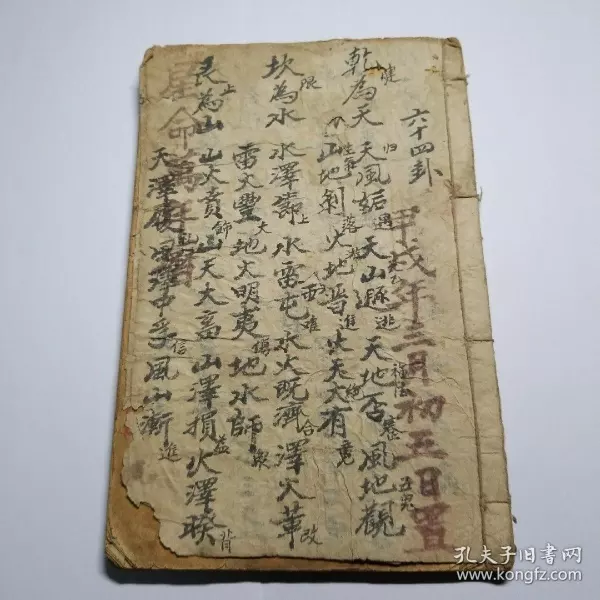 六十四卦
甲戌年三月初三日置
乾為天 天風姤 天山遯 天地否 風地觀
山地剝 火地晋 火天大有
坎為水 水澤節 水雷屯 水火既濟 澤火革
雷火豐 地火明夷 地水師
艮為山 山火賁 山天大畜 山澤損 火澤睽
天澤履 風澤中孚 風山漸
星命萬年書
孔夫子旧書网
www.kongfz.com